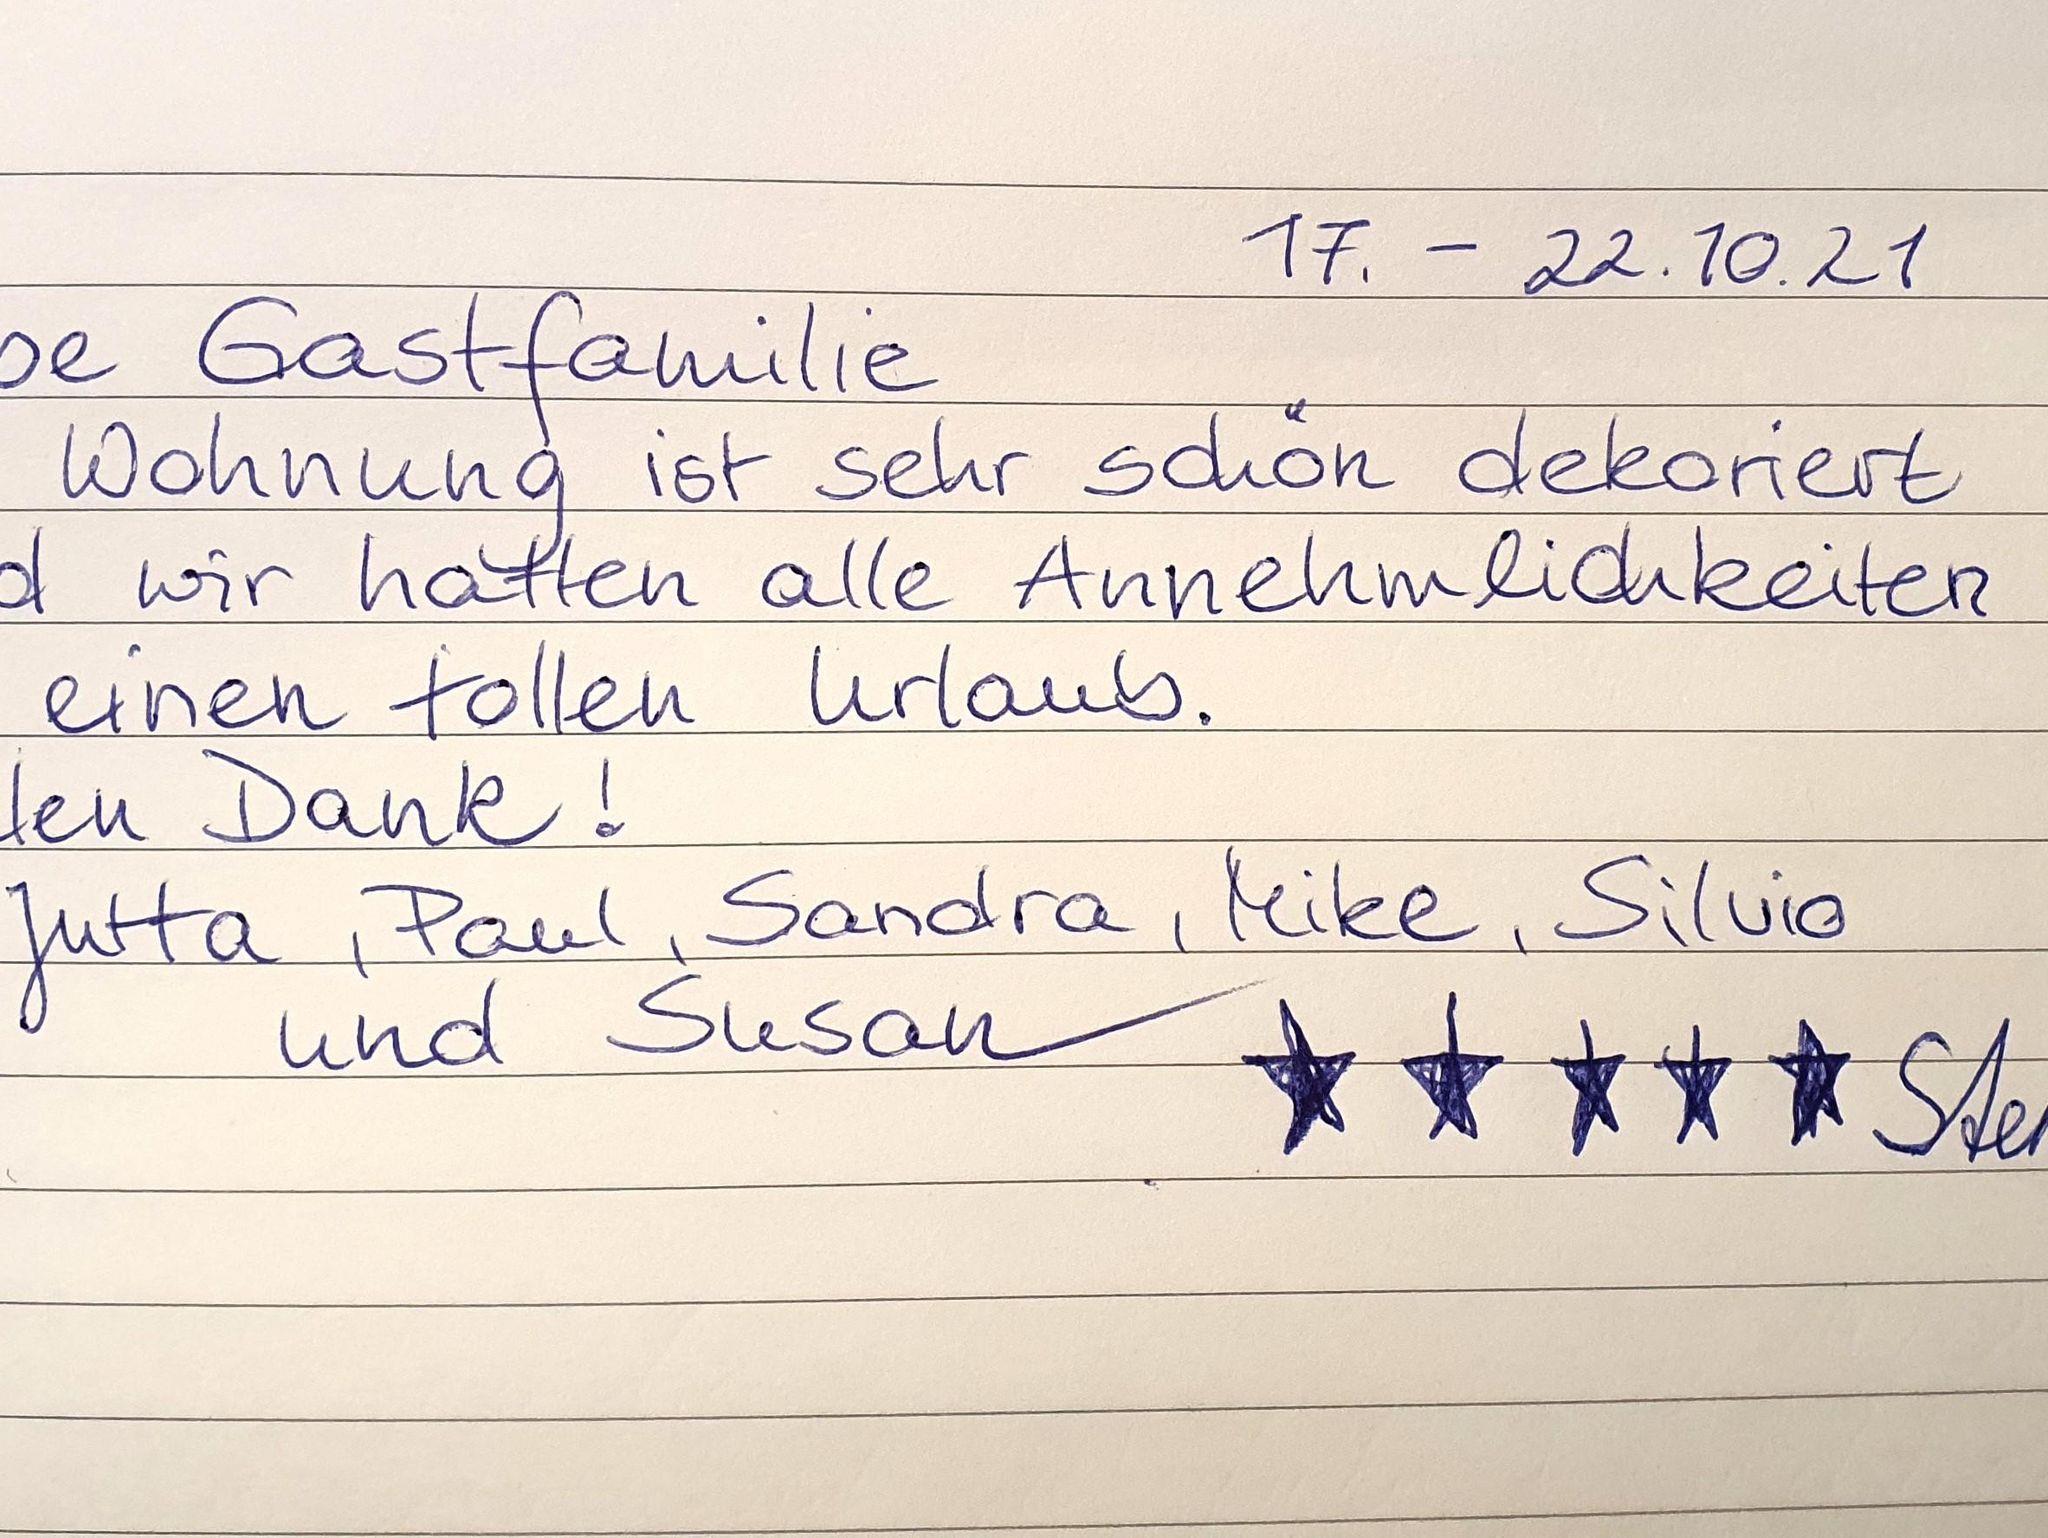 17. - 22.10.21
be Gastfamilie
Wohnung ist sehr schön dekoriert
d wir hatten alle Annehmlichkeiten
einen tollen Urlaub.
len Dank!
Jutta, Paul, Sandra, Mike, Silvio
und Susan
★ ★ ★ ★ ★ Ster